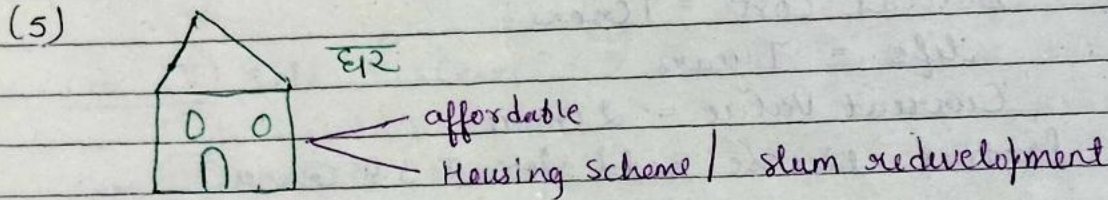 (5)
घर
affordable
Housing scheme / slum redevelopment